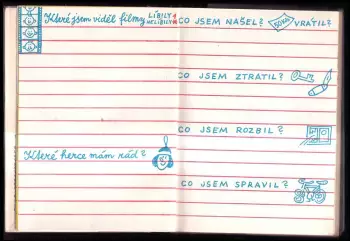 Které jsem viděl filmy LÍBILY
NELÍBILY
Které herce mám rád?
CO JSEM NAŠEL? VRÁTIL?
CO JSEM ZTRATIL?
CO JSEM ROZBIL?
CO JSEM SPRAVIL?